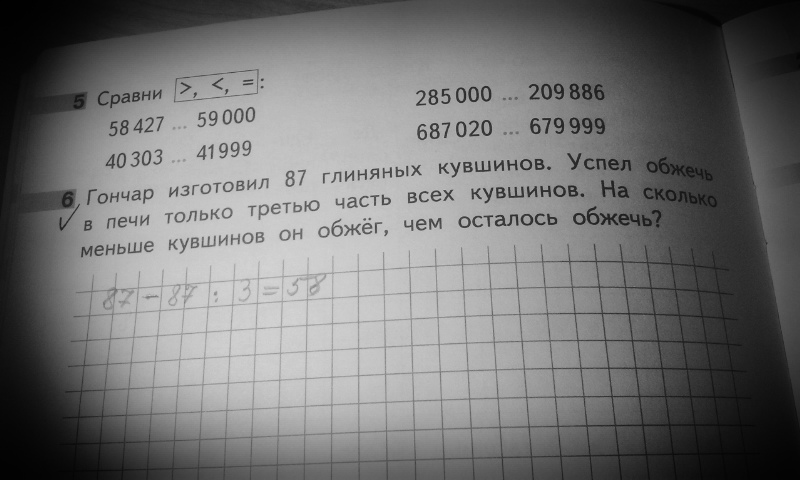 5 Сравни >, <, = :
58 427 ... 59 000
285 000 ... 209 886
40 303 ... 41 999
687 020 ... 679 999
6 Гончар изготовил 87 глиняных кувшинов. Успел обжечь
в печи только третью часть всех кувшинов. На сколько
меньше кувшинов он обжёг, чем осталось обжечь?
87 - 87 : 3 = 58